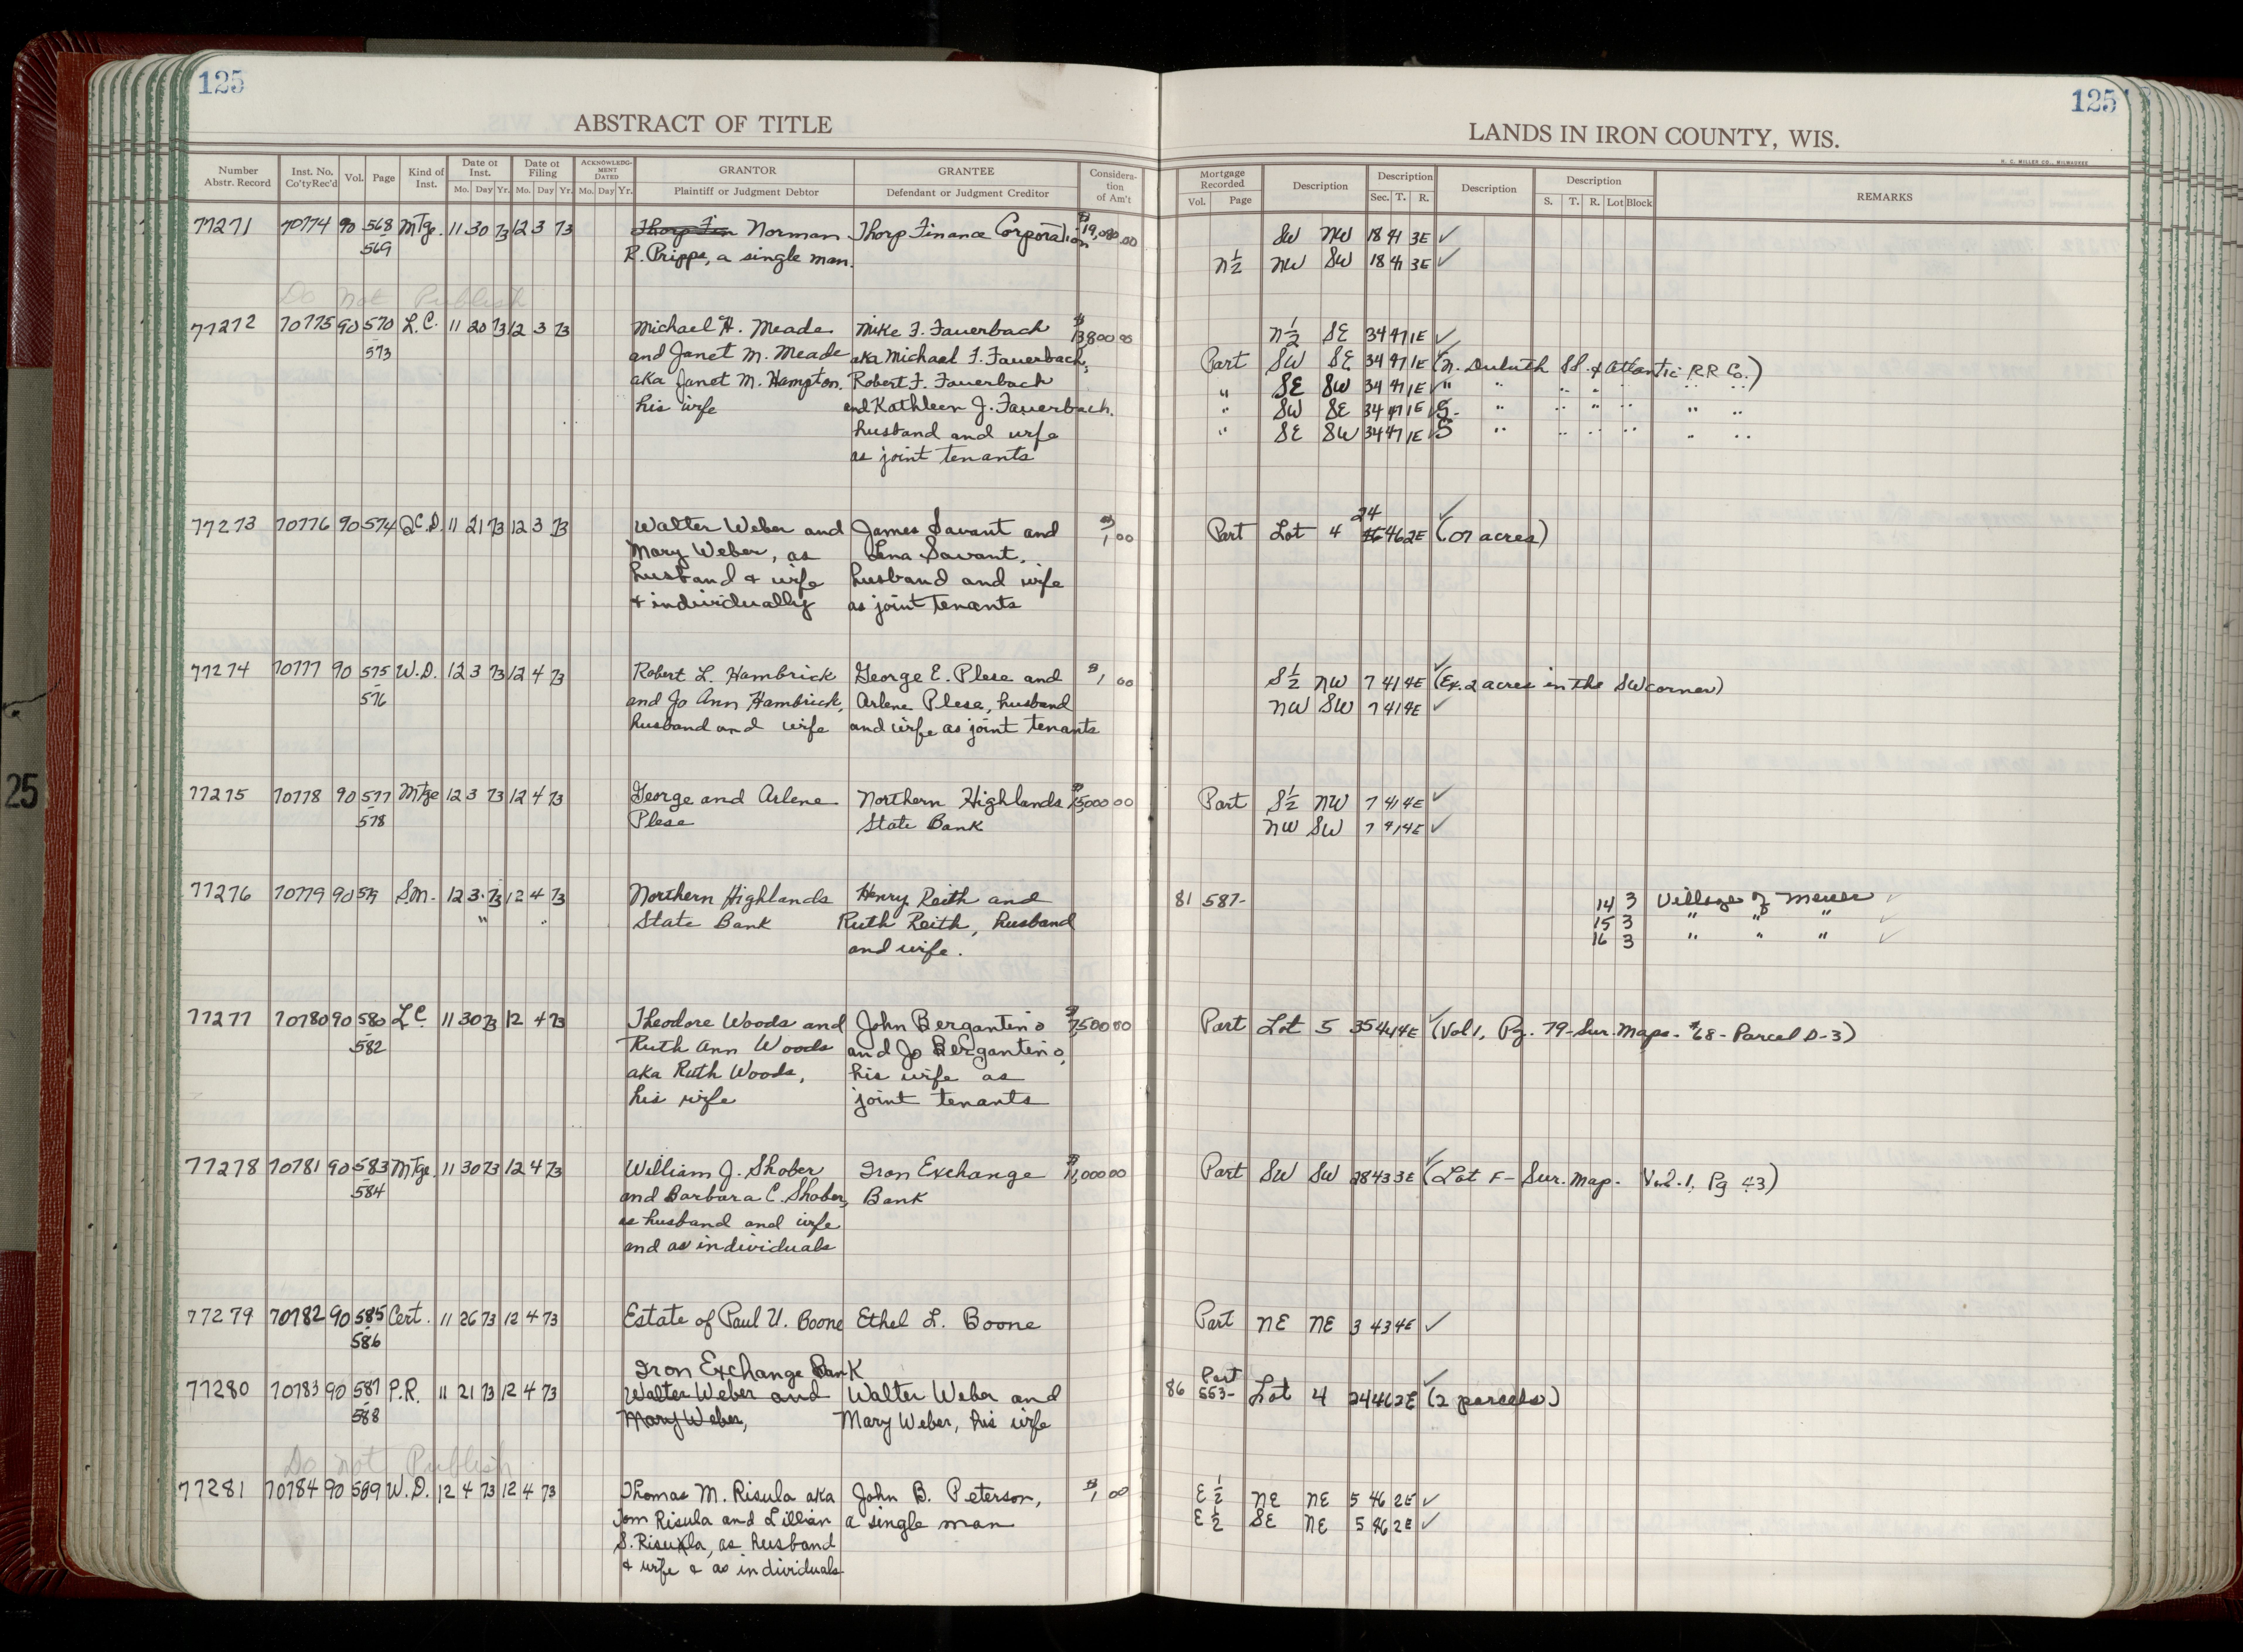 125
125
ABSTRACT OF TITLE
LANDS IN IRON COUNTY, WIS.
H. C. MILLER CO., MILWAUKEE
Number Abstr. Record
Inst. No. Co'ty Rec'd
Vol.
Page
Kind of Inst.
Date of Inst.
Mo. Day Yr.
Date of Filing
Mo. Day Yr.
ACKNOWLEDGMENT DATED
Mo. Day Yr.
GRANTOR
Plaintiff or Judgment Debtor
GRANTEE
Defendant or Judgment Creditor
Consideration of Am't
Mortgage Recorded
Vol. Page
Description
Description
Sec. T. R.
Description
Description
S. T. R. Lot Block
REMARKS
77271 70774 90 568 Mtge. 11 30 73 12 3 73 Thorp Fin Norman Thorp Finance Corporation $19,080.00 SW NW 18 41 3E ✓
569 R. Pripps, a single man. N½ NW SW 18 41 3E ✓
Do not Publish
77272 70775 90 570 L.C. 11 20 73 12 3 73 Michael H. Meade Mike F. Fauerbach $13,800 00 N½ SE 34 47 1E ✓
573 and Janet M. Meade aka Michael F. Fauerbach, Part SW SE 34 47 1E ✓ (N. Duluth SS. & Atlantic R.R. Co.)
aka Janet M. Hampton, Robert F. Fauerbach " SE SW 34 47 1E ✓ " " " " " " "
his wife and Kathleen J. Fauerbach. " SW SE 34 47 1E ✓ S. " " " " " "
husband and wife " SE SW 34 47 1E ✓ S " " " " " "
as joint tenants
77273 70776 90 574 Q.C.D. 11 21 73 12 3 73 Walter Weber and James Savant and $1 00 Part Lot 4 24 46 2E ✓ (.07 acres)
Mary Weber, as Lena Savant,
husband & wife husband and wife
& individually as joint tenants
77274 70777 90 575 W.D. 12 3 73 12 4 73 Robert L. Hambrick George E. Plese and $1 00 S½ NW 7 41 4E ✓ (Ex. 2 acres in the SW corner)
576 and Jo Ann Hambrick, Arlene Plese, husband NW SW 7 41 4E ✓
husband and wife and wife as joint tenants
77275 70778 90 577 Mtge 12 3 73 12 4 73 George and Arlene Northern Highlands 00 Part S½ NW 7 41 4E ✓
578 Plese State Bank NW SW 7 41 4E ✓
77276 70779 90 579 S.M. 12 3 73 12 4 73 Northern Highlands Henry Reith and 81 587- 14 3 Village of Mercer ✓
" " State Bank Ruth Reith, husband 15 3 " " "
and wife. 16 3 " " " ✓
77277 70780 90 580 L.C. 11 30 73 12 4 73 Theodore Woods and John Bergantino $7,500 00 Part Lot 5 35 44 4E ✓ (Vol 1, Pg. 79-Sur. Maps- #68- Parcel D-3)
582 Ruth Ann Woods and Jo Bergantino,
aka Ruth Woods, his wife as
his wife joint tenants
77278 70781 90 583 Mtge. 11 30 73 12 4 73 William J. Shober Iron Exchange 00 Part SW SW 28 43 3E ✓ (Lot F- Sur. Map- Vol. 1, Pg 43)
584 and Barbara C. Shober, Bank
as husband and wife
and as individuals
77279 70782 90 585 Cert. 11 26 73 12 4 73 Estate of Paul U. Boone Ethel L. Boone Part NE NE 3 43 4E ✓
586
Iron Exchange Bank Part
77280 70783 90 587 P.R. 11 21 73 12 4 73 Walter Weber and Walter Weber and 86 553- Lot 4 24 46 2E ✓ (2 parcels)
588 Mary Weber, Mary Weber, his wife
Do not Publish
77281 70784 90 589 W.D. 12 4 73 12 4 73 Thomas M. Risula aka John B. Peterson, $1 00 E½ NE NE 5 46 2E ✓
Tom Risula and Lillian a single man E½ SE NE 5 46 2E ✓
S. Risula, as husband
& wife & as individuals
25